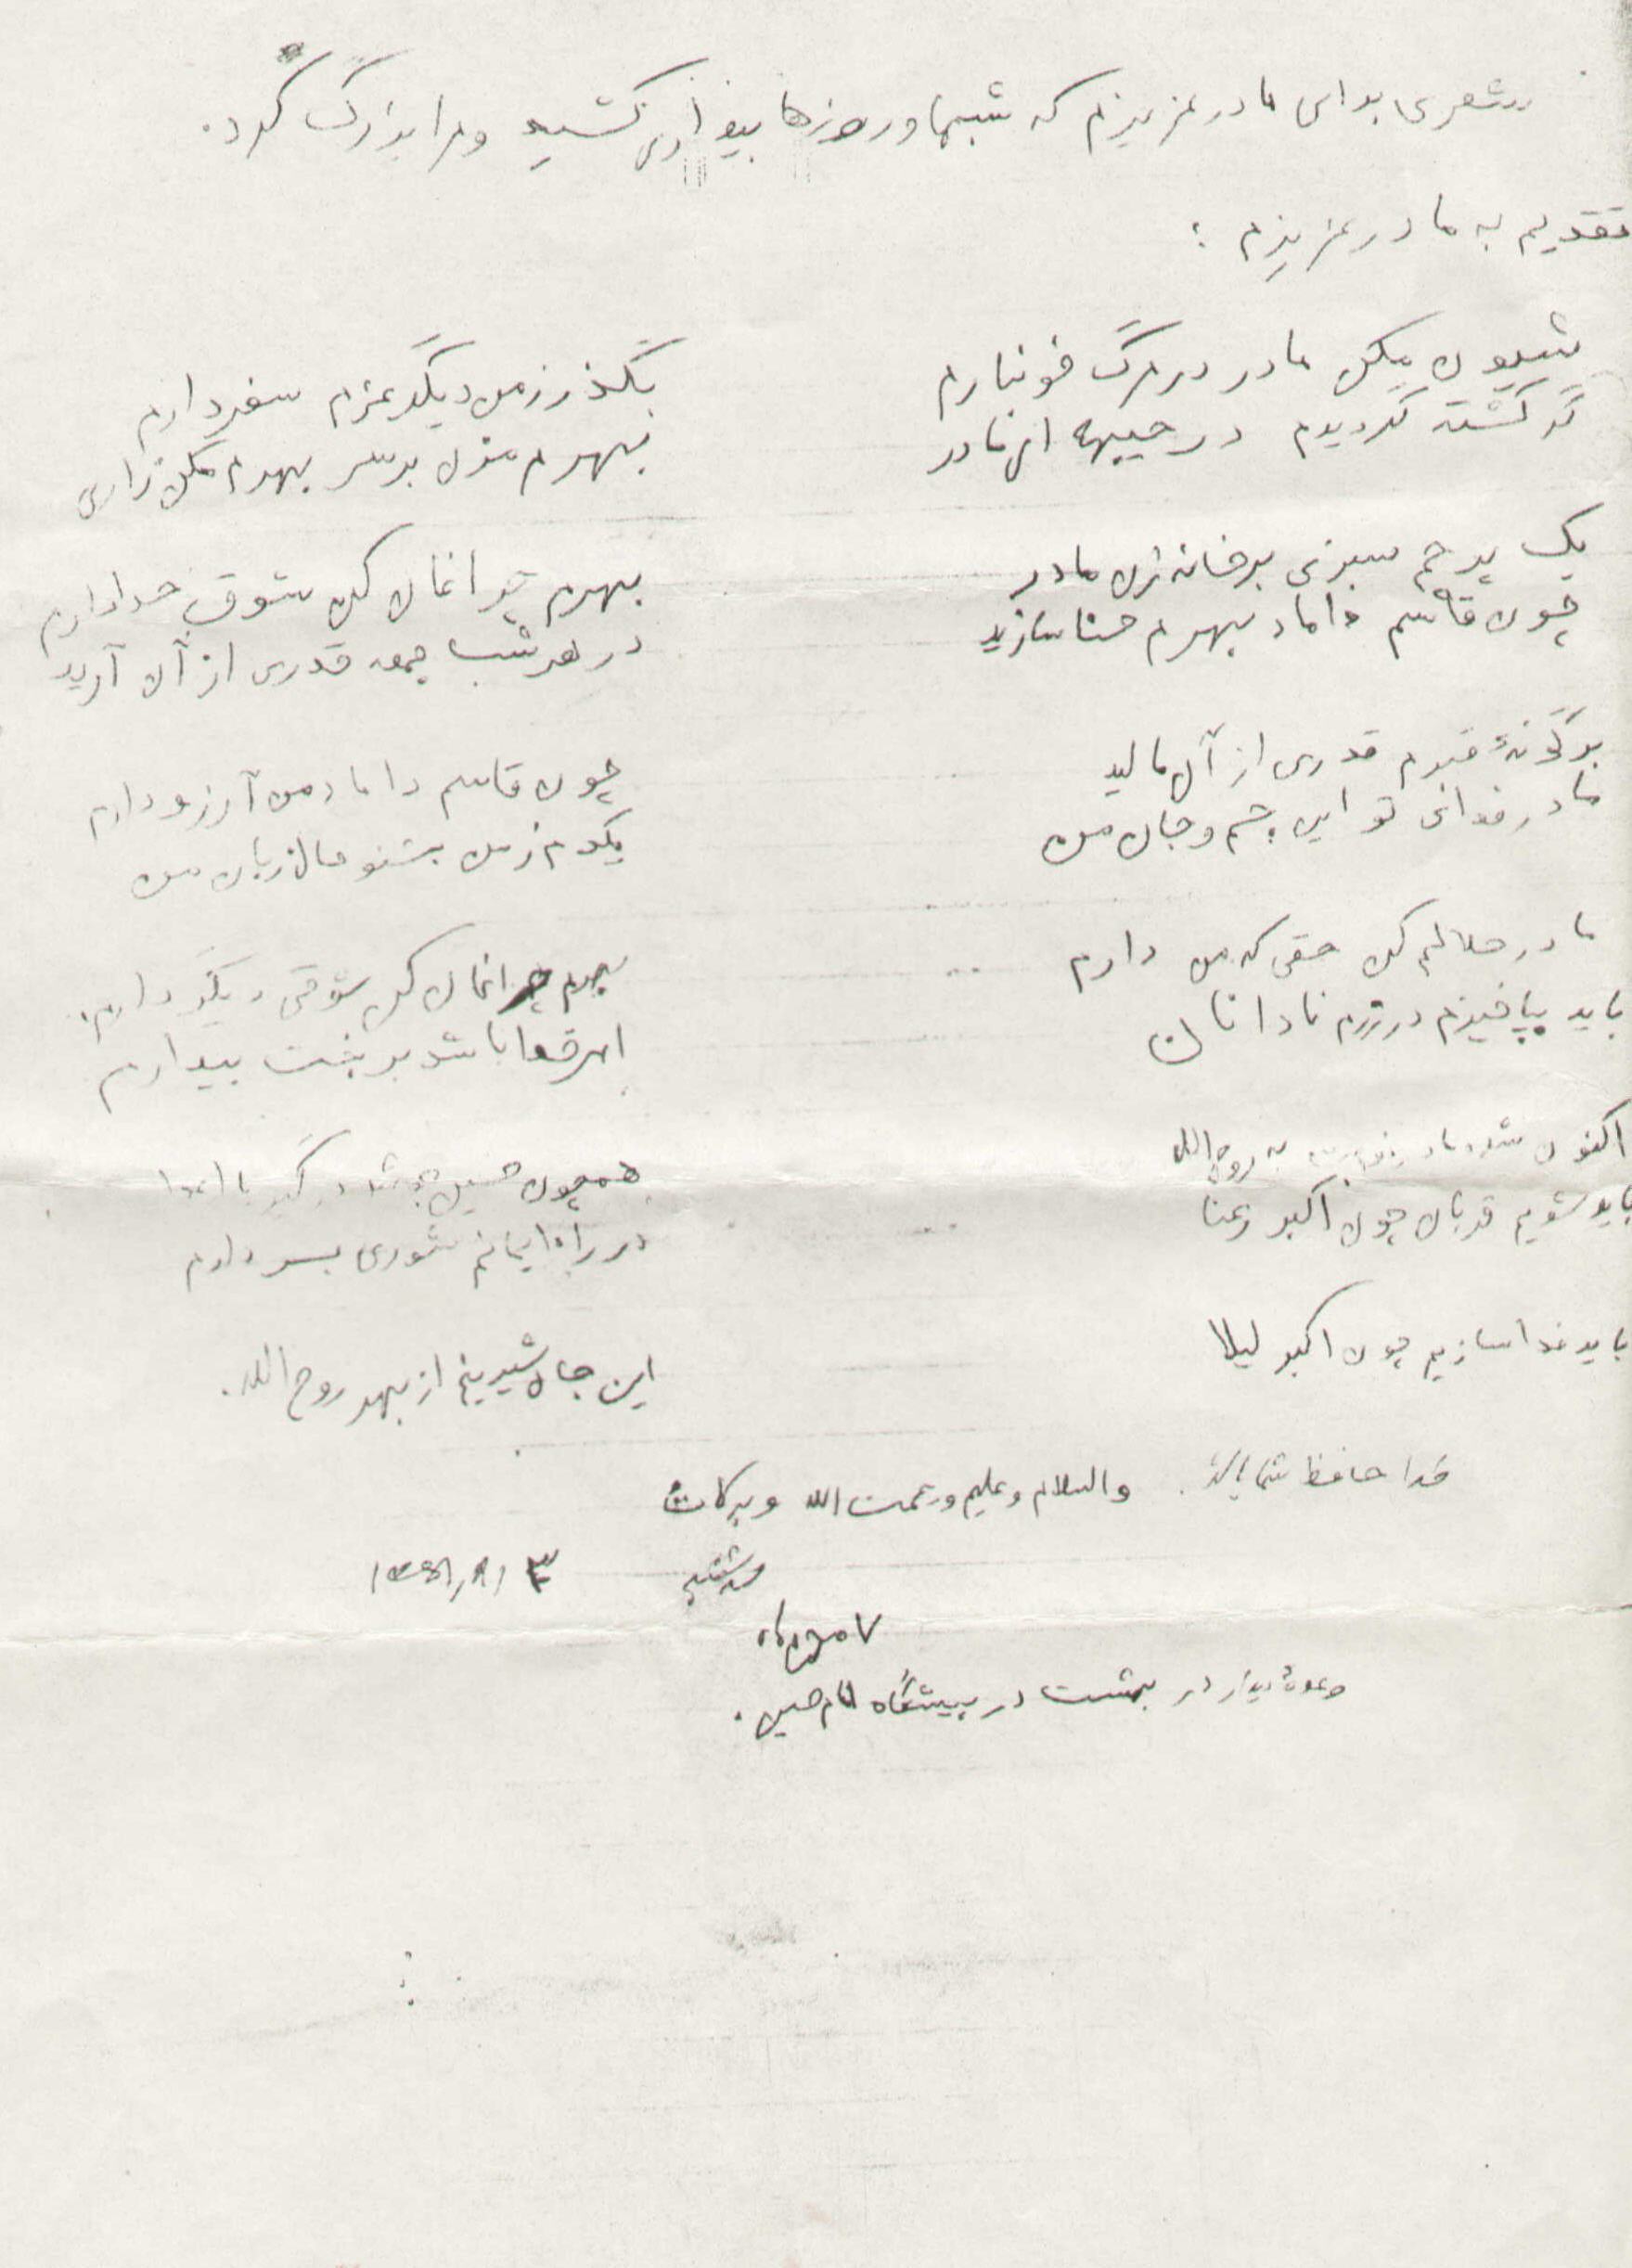 شعری برای مادر عزیزم که شبها و روزها بیداری کشید و مرا بزرگ کرد.
تقدیم به مادر عزیزم :
شیون مکن مادر در مرگ خونبارم بگذر ز من دیگر عزم سفر دارم
گر کشته گردیدم در جبهه ای مادر بهرم مزن بر سر بهرم مکن زاری
یک پرچم سبزی بر خانه زن مادر بهرم چراغان کن شوق خدا دارم
چون قاسم داماد بهرم حنا سازید در هر شب جمعه قدری از آن آرید
بر گونهٔ قبرم قدری از آن مالید چون قاسم داماد من آرزو دارم
مادر فدای تو این جسم و جان من یکدم ز من بشنو حال زبان من
مادر حلالم کن حقی که من دارم بهرم چراغان کن شوقی دیگر دارم.
باید بپاخیزم در رزم نادانان امر خدا باشد بر بخت بیدارم
اکنون شده مادر به روح الله همچون حسین درگیر با اعدا
باید شویم قربان چون اکبر رعنا در راه ایمانم شوری بسر دارم
باید فدا سازیم چون اکبر لیلا این جان شیرینم از بهر روح الله.
خدا حافظ شما باشد. والسلام و علیم و رحمت الله و برکات
۱۳۶۱,۸,۳
۷ محرم ماه
وعدهٔ دیدار در بهشت در پیشگاه امام حسین.